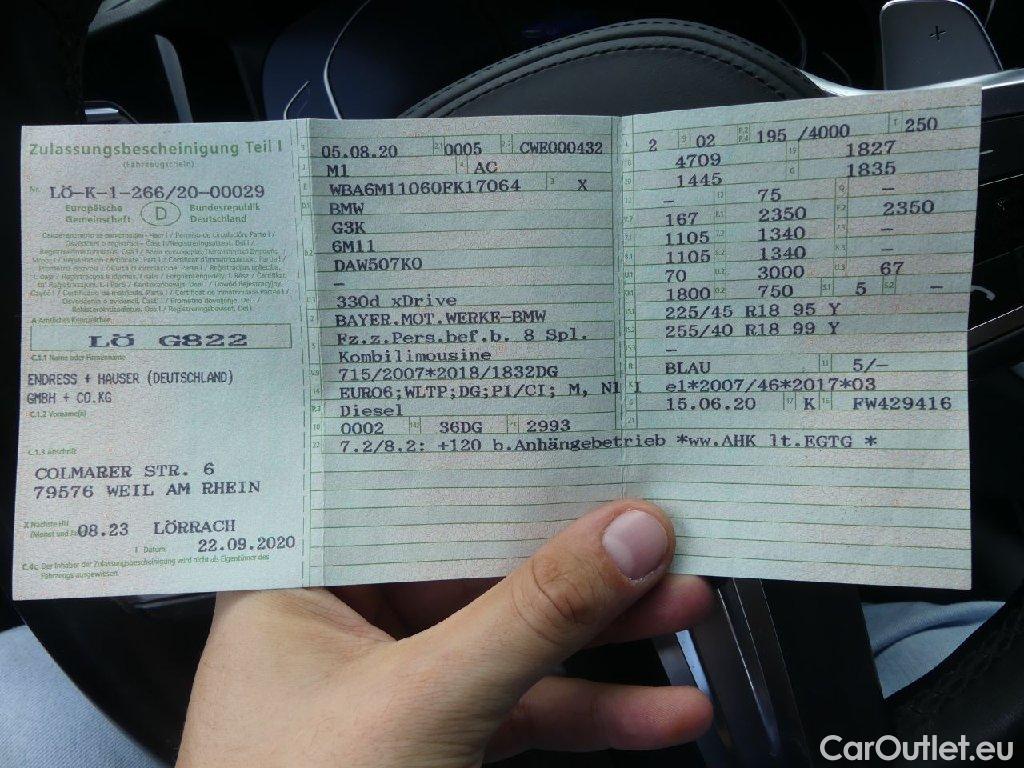 Zulassungsbescheinigung Teil I
(Fahrzeugschein)
Nr. LÖ-K-1-266/20-00029
Europäische Gemeinschaft
D
Bundesrepublik Deutschland
A Amtliches Kennzeichen
LÖ G822
C.1.1 Name oder Firmenname
ENDRESS + HAUSER (DEUTSCHLAND)
GMBH + CO.KG
C.1.2 Vorname(n)
C.1.3 Anschrift
COLMARER STR. 6
79576 WEIL AM RHEIN
08.23 LÖRRACH
I Datum 22.09.2020
C.4c Der Inhaber der Zulassungsbescheinigung wird nicht als Eigentümer des
Fahrzeugs ausgewiesen.
05.08.20 0005 CWE000432
M1 AC
WBA6M11060FK17064 X
BMW
G3K
6M11
DAW507K0
–
330d xDrive
BAYER.MOT.WERKE-BMW
Fz.z.Pers.bef.b. 8 Spl.
Kombilimousine
715/2007*2018/1832DG
EURO6;WLTP;DG;PI/CI; M, N1 I
Diesel
0002 36DG 2993
7.2/8.2: +120 b.Anhängebetrieb *ww.AHK lt.EGTG *
2 02 195 /4000 250
4709 1827
1445 1835
– 75 –
167 2350 2350
1105 1340 –
1105 1340 –
70 3000 67
1800 750 5 –
225/45 R18 95 Y
255/40 R18 99 Y
–
BLAU 5/–
e1*2007/46*2017*03
15.06.20 K FW429416
+
CarOutlet.eu